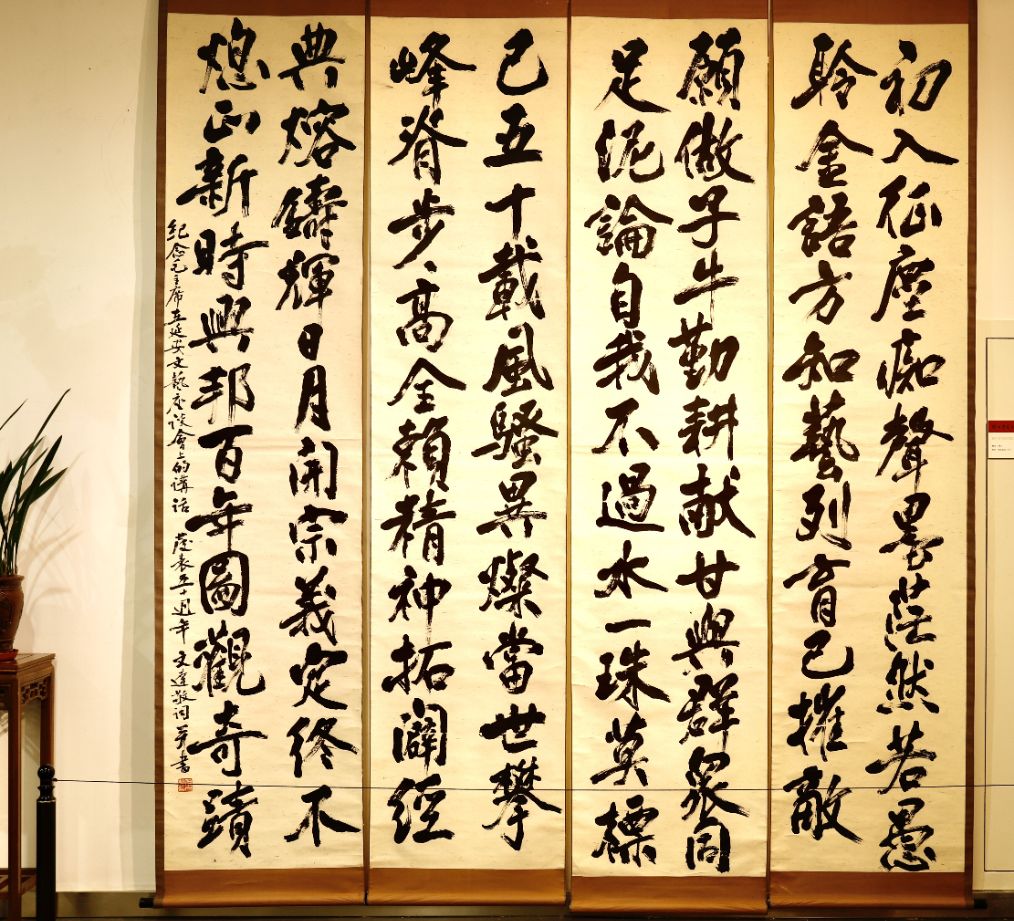 初入征塵痴聲墨茫然若愚
聆金語方知藝列育已摧敵
願做子牛勤耕献甘與群衆同
足泥論自我不過水一珠莫標
已五十載風騷異燦當世攀
峰脊步高全賴精神拓闢經
典熔鑄輝日月開宗義定終不
熄正新時興邦百年圖觀奇蹟
紀念毛主席在延安文藝座談會上的講話 發表五十週年 文蓬敬詞并書